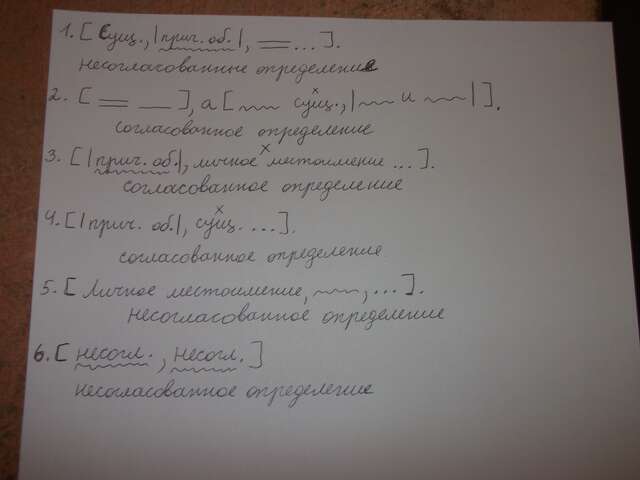 1. [Сущ., |прич. об.|, ...].
несогласованные определение
2. [ ], а [ сущ., | и |].
согласованное определение
3. [|прич. об.|, личное местоимение ...].
согласованное определение
4. [|прич. об.|, сущ. ...].
согласованное определение
5. [Личное местоимение, , ...].
несогласованное определение
6. [несогл., несогл.]
несогласованное определение